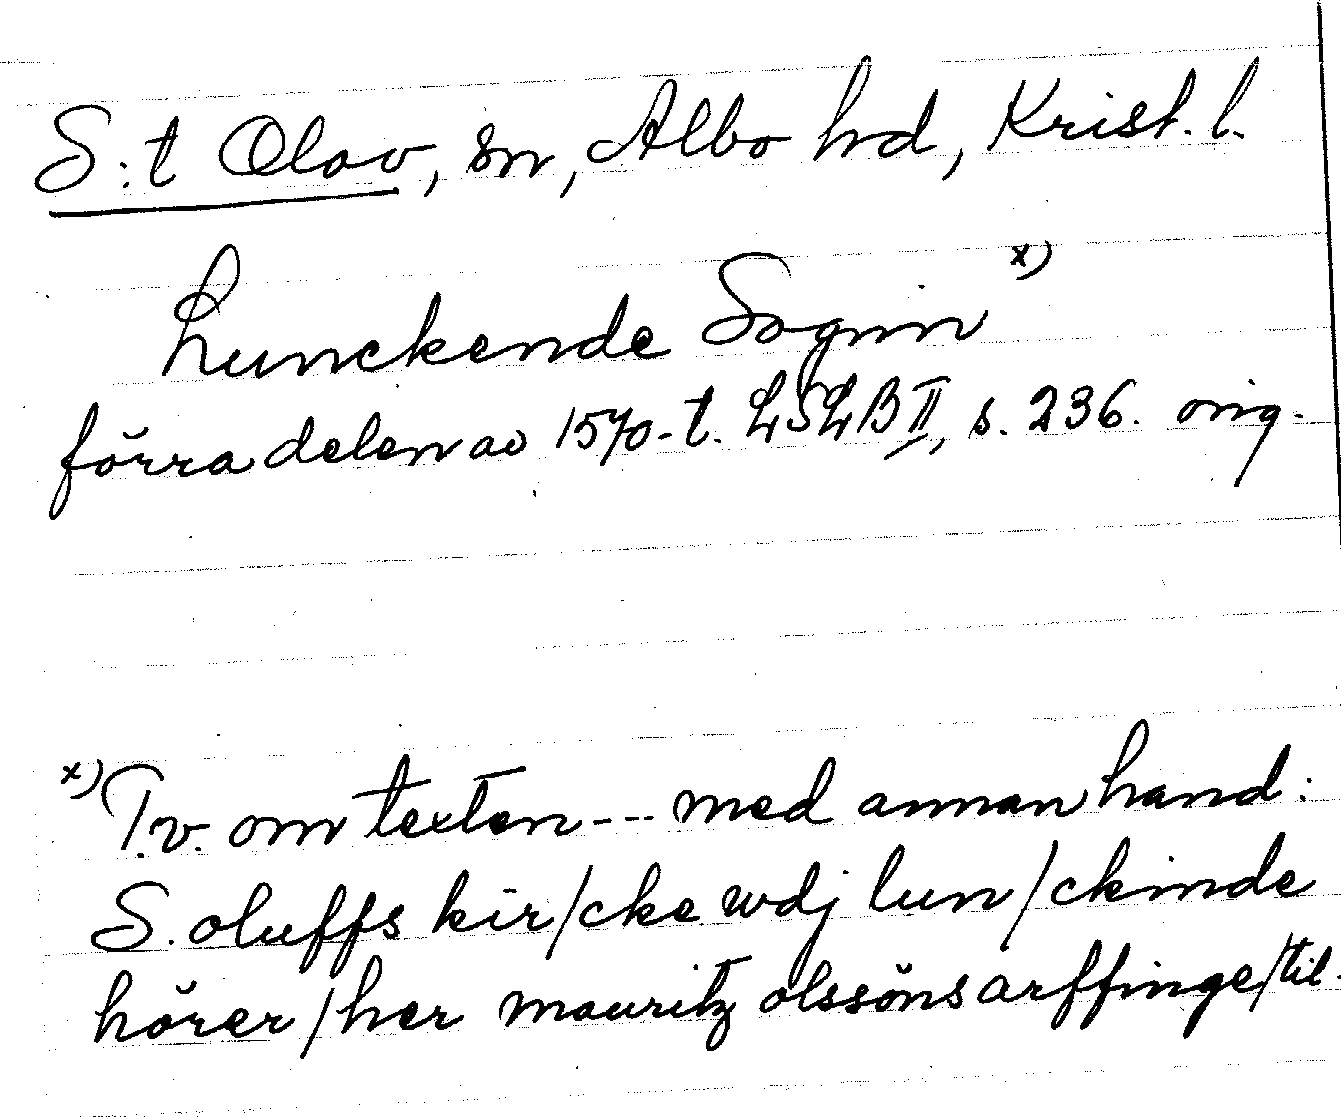 S:t Olov, sn, Albo hd, Krist. l.
Lunckende Sognn x)
förra delen av 1570-t. LSLB II, s. 236. orig.
x) T.v. om texten --- med annan hand:
S. oluffs kir/cke wdj lun/ckinde
hörer/her mauritz olssöns arffinge/til.